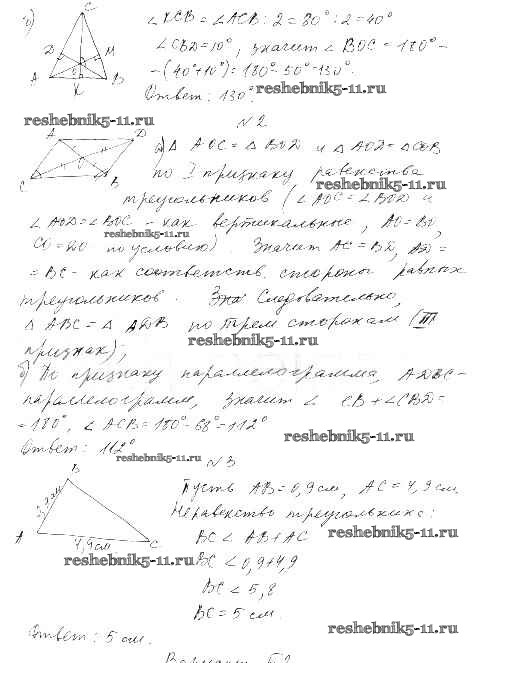 б)
C
D
M
A
K
B
∠KCB = ∠ACB : 2 = 80° : 2 = 40°
∠CBD = 10°, значит ∠BOC = 180° -
- (40° + 10°) = 180° - 50° = 130°.
Ответ: 130°.
reshebnik5-11.ru
reshebnik5-11.ru
N 2
A
D
O
C
B
а) Δ AOC = Δ BOD и Δ AOD = Δ COB
по I признаку равенства
reshebnik5-11.ru
треугольников (∠AOC = ∠BOD и
∠AOD = ∠BOC - как вертикальные, AO = BO,
reshebnik5-11.ru
CO = DO по условию) Значит AC = BD, AD =
= BC - как соответств. стороны равных
треугольников. Зна Следовательно,
Δ ABC = Δ ADB по трем сторонам (III
reshebnik5-11.ru
признак);
б) По признаку параллелограмма, ADBC -
параллелограмм, значит ∠ CB + ∠CBD =
= 180°, ∠ACB = 180° - 68° = 112°
reshebnik5-11.ru
Ответ: 112°
reshebnik5-11.ru
N 3
B
A
4,9 см
C
Пусть AB = 0,9 см, AC = 4,9 см.
Неравенство треугольника:
BC < AB + AC
reshebnik5-11.ru
reshebnik5-11.ru
BC < 0,9 + 4,9
BC < 5,8
BC = 5 см.
Ответ: 5 см.
reshebnik5-11.ru
Вариант